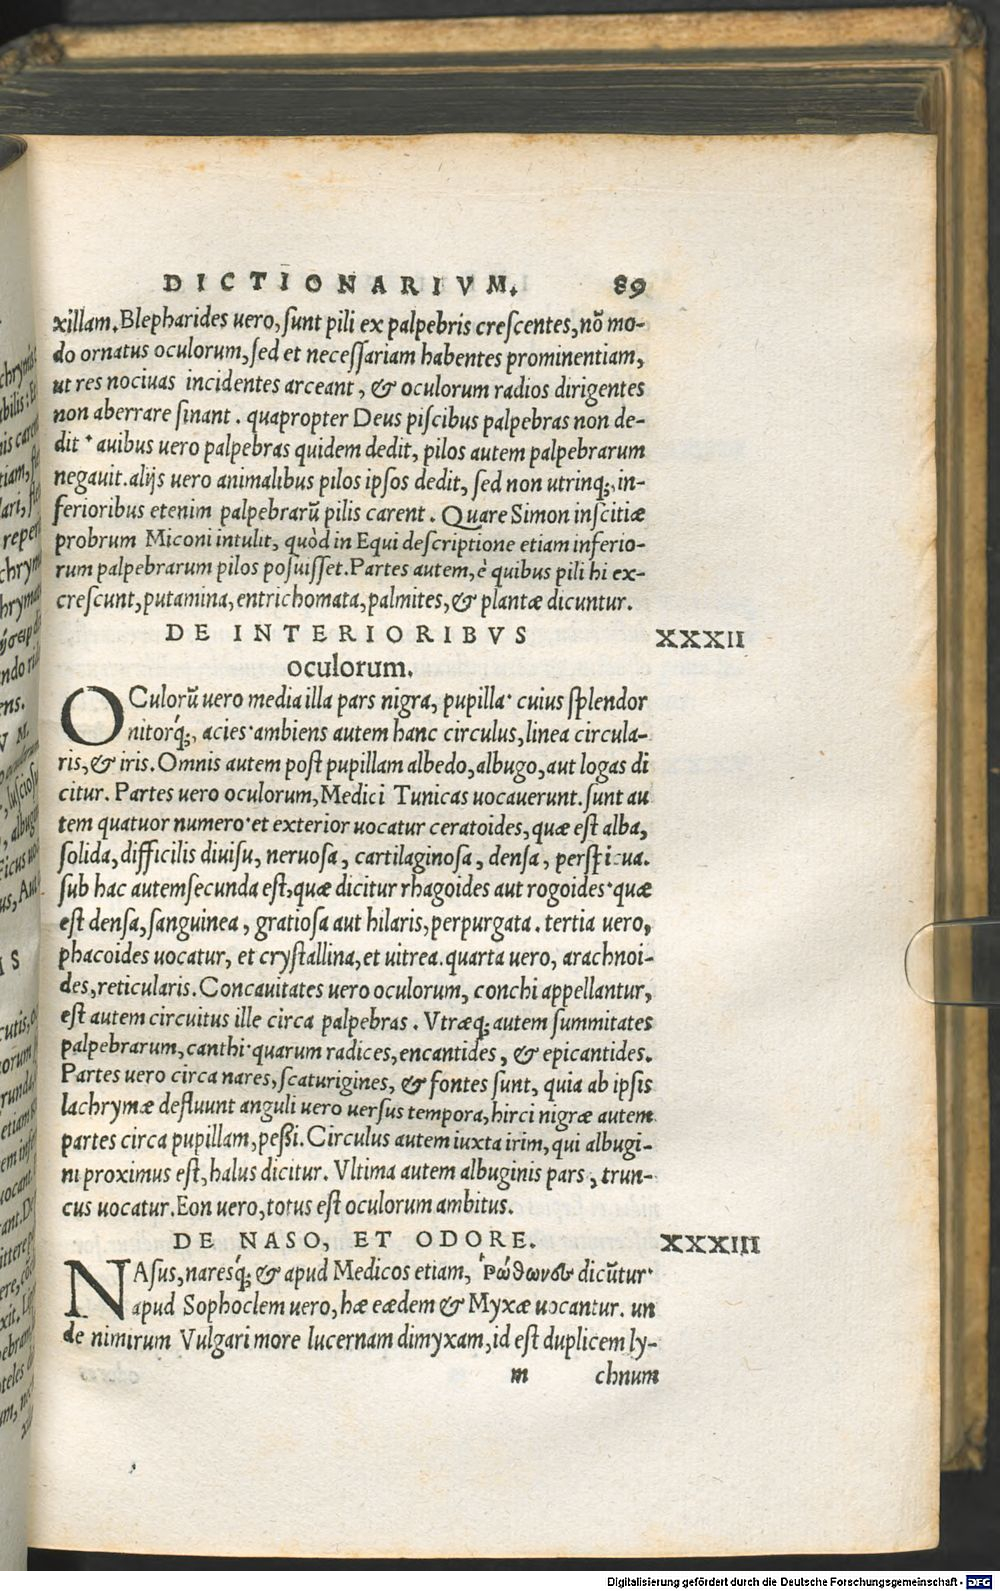 DICTIONARIVM. 89
xillam. Blepharides uero, sunt pili ex palpebris crescentes, nõ mo-
do ornatus oculorum, sed et necessariam habentes prominentiam,
ut res nociuas incidentes arceant, & oculorum radios dirigentes
non aberrare sinant. quapropter Deus piscibus palpebras non de-
dit· auibus uero palpebras quidem dedit, pilos autem palpebrarum
negauit. alijs uero animalibus pilos ipsos dedit, sed non utrinq;, in-
ferioribus etenim palpebrarũ pilis carent. Quare Simon inscitiæ
probrum Miconi intulit, quòd in Equi descriptione etiam inferio-
rum palpebrarum pilos posuisset. Partes autem, è quibus pili hi ex-
crescunt, putamina, entrichomata, palmites, & plantæ dicuntur.
DE INTERIORIBVS XXXII
oculorum.
OCulorũ uero media illa pars nigra, pupilla· cuius splendor
nitorq́;, acies· ambiens autem hanc circulus, linea circula-
ris, & iris. Omnis autem post pupillam albedo, albugo, aut logas di
citur. Partes uero oculorum, Medici Tunicas uocauerunt. sunt au
tem quatuor numero· et exterior uocatur ceratoides, quæ est alba,
solida, difficilis diuisu, neruosa, cartilaginosa, densa, perspicua.
sub hac autem secunda est, quæ dicitur rhagoides aut rogoides· quæ
est densa, sanguinea, gratiosa aut hilaris, perpurgata. tertia uero,
phacoides uocatur, et crystallina, et uitrea. quarta uero, arachnoi-
des, reticularis. Concauitates uero oculorum, conchi appellantur,
est autem circuitus ille circa palpebras. Vtræq; autem summitates
palpebrarum, canthi· quarum radices, encantides, & epicantides.
Partes uero circa nares, scaturigines, & fontes sunt, quia ab ipsis
lachrymæ defluunt anguli uero uersus tempora, hirci nigræ autem
partes circa pupillam, pessi. Circulus autem iuxta irim, qui albugi-
ni proximus est, halus dicitur. Vltima autem albuginis pars, trun-
cus uocatur. Eon uero, totus est oculorum ambitus.
DE NASO, ET ODORE. XXXIII
NAsus, naresq́; & apud Medicos etiam, ῥώθωνες dicũtur·
apud Sophoclem uero, hæ eædem & Myxæ uocantur. un
de nimirum Vulgari more lucernam dimyxam, id est duplicem ly-
m chnum
Digitalisierung gefördert durch die Deutsche Forschungsgemeinschaft - DFG